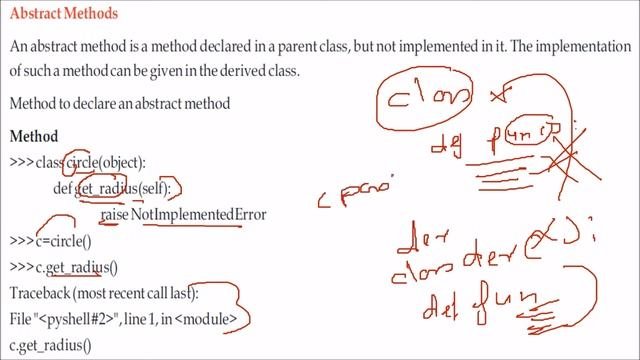 Abstract Methods
An abstract method is a method declared in a parent class, but not implemented in it. The implementation
of such a method can be given in the derived class.
Method to declare an abstract method
Method
>>> class circle(object):
def get_radius(self):
raise NotImplementedError
>>> c=circle()
>>> c.get_radius()
Traceback (most recent call last):
File "<pyshell#2>", line 1, in <module>
c.get_radius()
class x
def func():
der
class der(x):
def fun